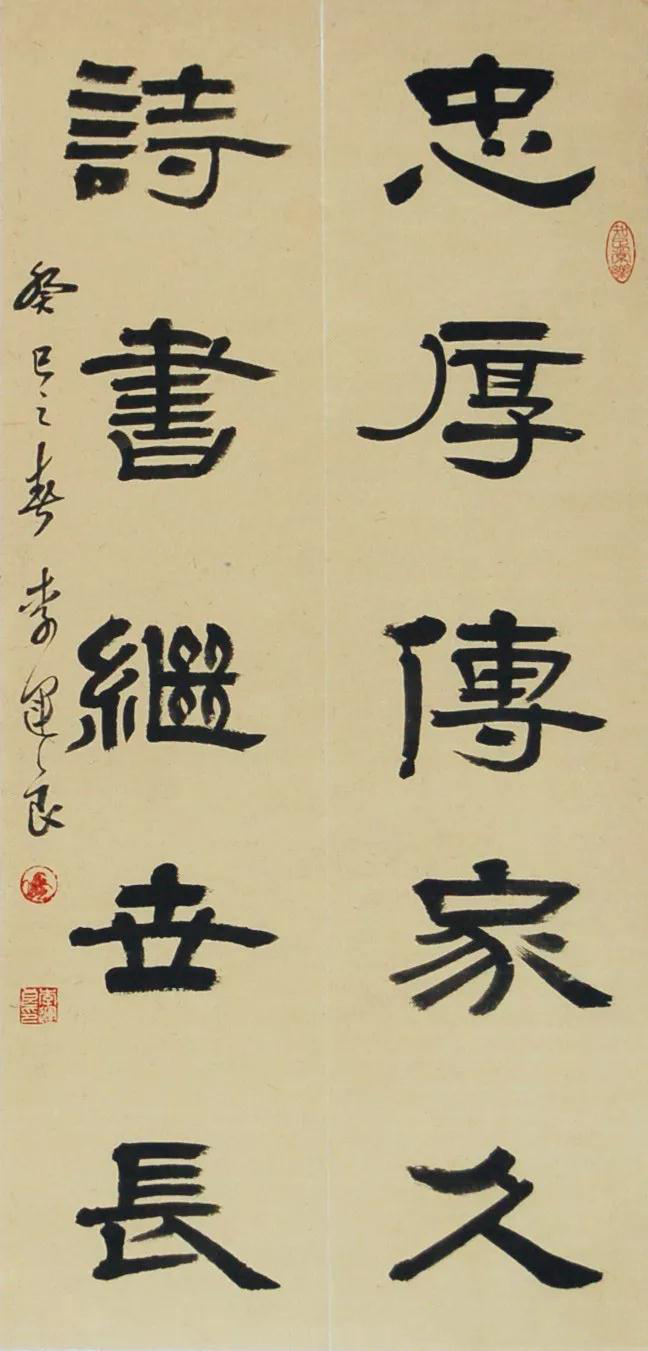 忠厚傳家久
詩書繼世長
癸巳之春 李運良